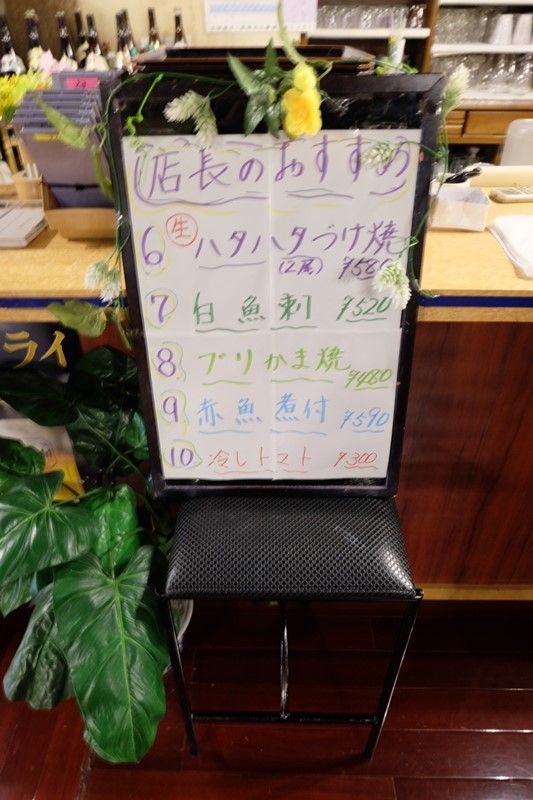 店長のおすすめ
6 生 ハタハタづけ焼
(2尾) ¥580
7 白魚刺 ¥520
8 ブリかま焼 ¥480
9 赤魚煮付 ¥590
10 冷しトマト ¥300
ライ